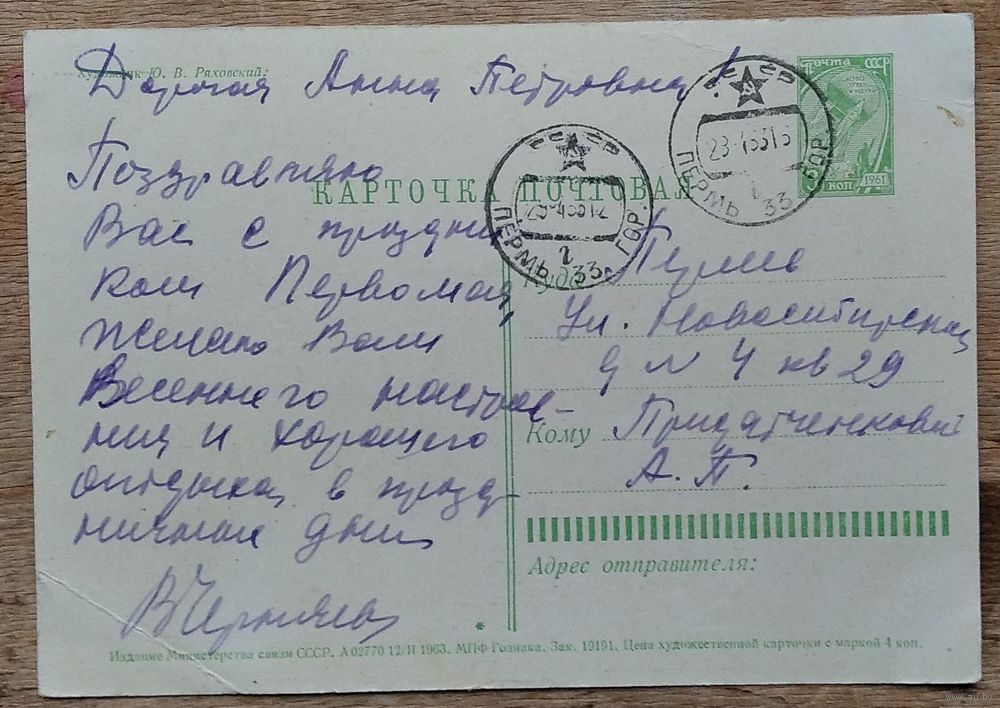 Художник Ю. В. Ряховский.
Дорогая Анна Петровна!
Поздравляю
Вас с праздни
ком Первомая,
желаю Вам
Весеннего настрое-
ния и хорошего
отдыха в празд-
ничные дни
В Черняева
КАРТОЧКА ПОЧТОВАЯ
СССР
ПЕРМЬ 33 ГОР.
СССР
ПЕРМЬ 33 ГОР.
ПОЧТА СССР
КОП 1961
Куда Пермь
Ул. Новосибирская
д № 4 кв 29
Кому Придатченковой
А. П.
Адрес отправителя:
Издание Министерства связи СССР. А 02770 12/II 1963. МПФ Гознака. Зак. 19191. Цена художественной карточки с маркой 4 коп.
www.ay.by